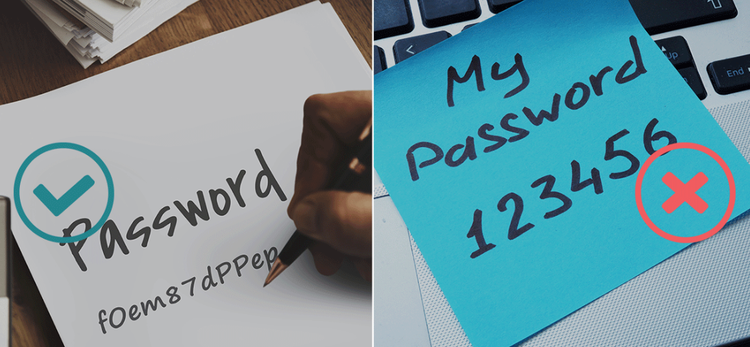 Password
fOem87dPPep
My
Password
123456
up
End